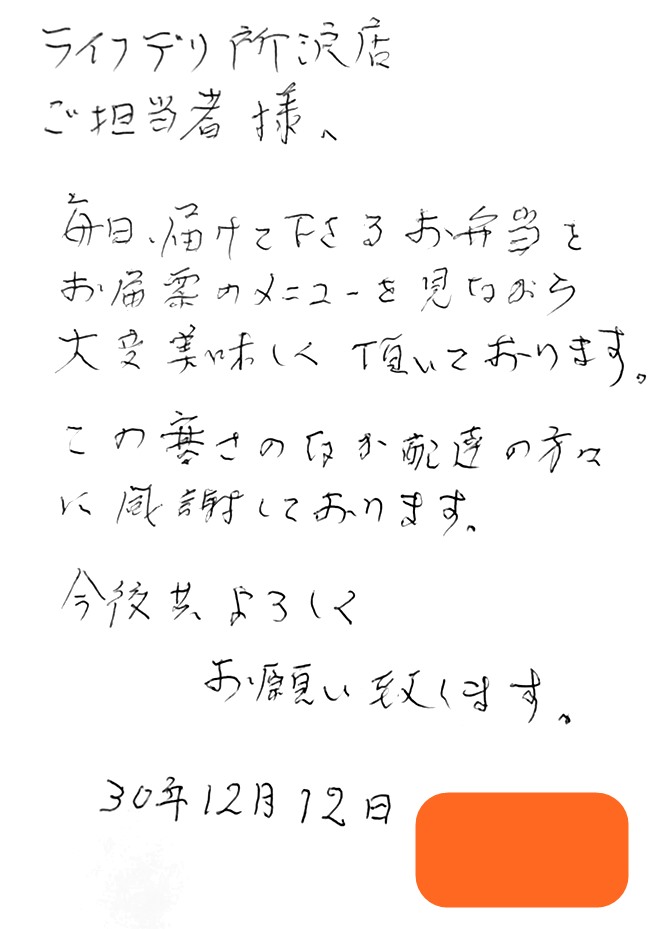 ライフデリ所沢店
ご担当者様、
毎日、届けて下さるお弁当を
お届票のメニューを見ながら
大変美味しく頂いております。
この寒さのなか配達の方々
に感謝しております。
今後共よろしく
お願い致します。
30年12月12日